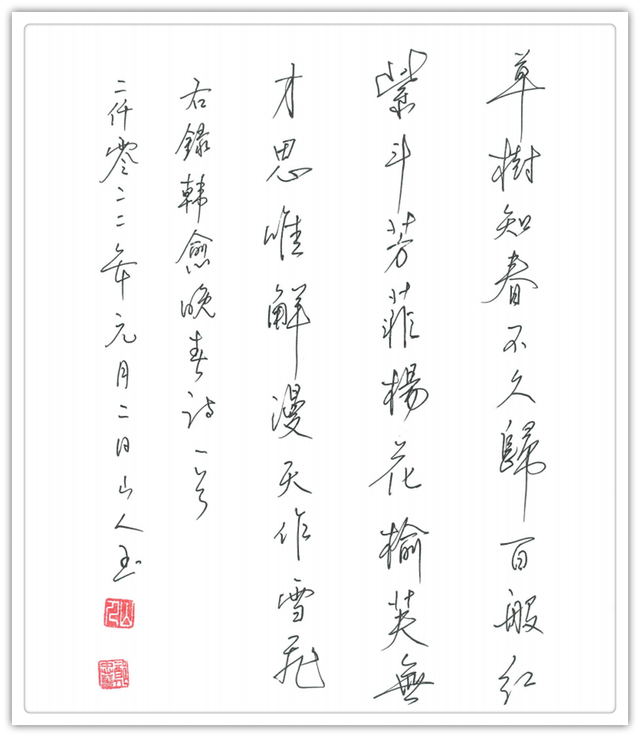 草樹知春不久歸百般紅
紫斗芳菲楊花榆莢無
才思唯觧漫天作雪飛
右錄韓愈晚春詩一首
二仟零二二年元月二日山人玉
山人